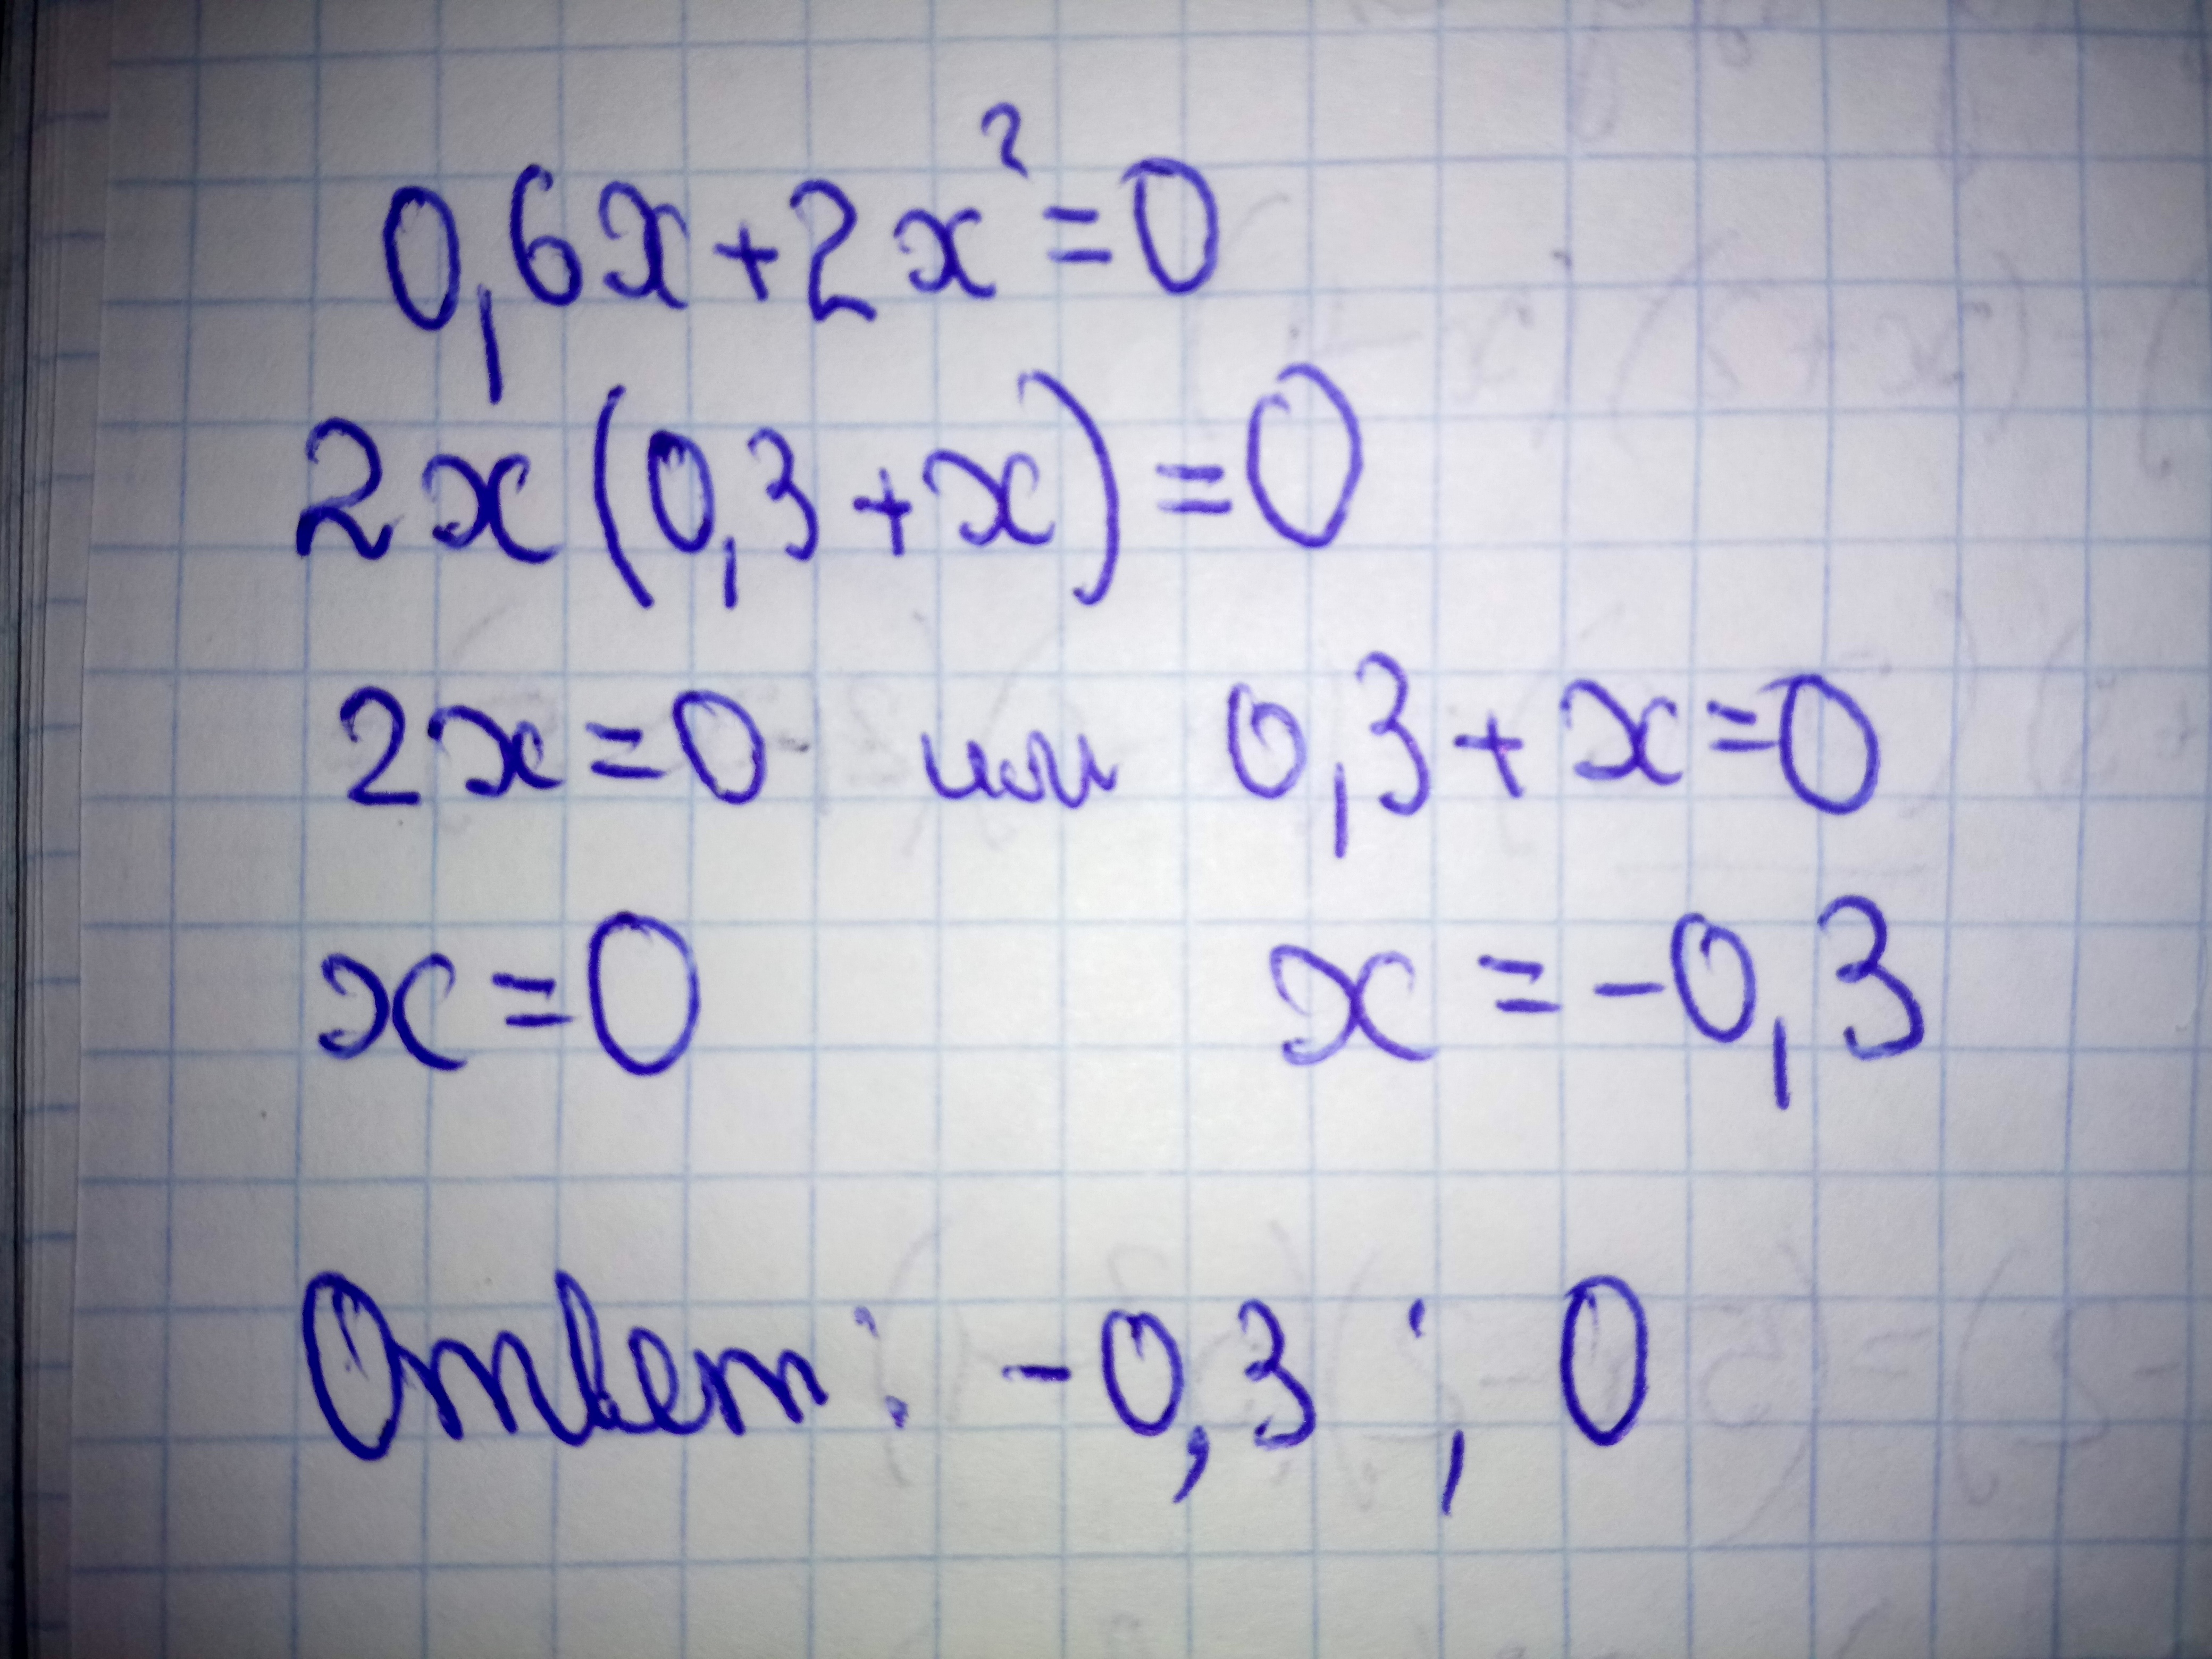 0,6x+2x²=0
2x(0,3+x)=0
2x=0 или 0,3+x=0
x=0 x=-0,3
Ответ: -0,3 ; 0